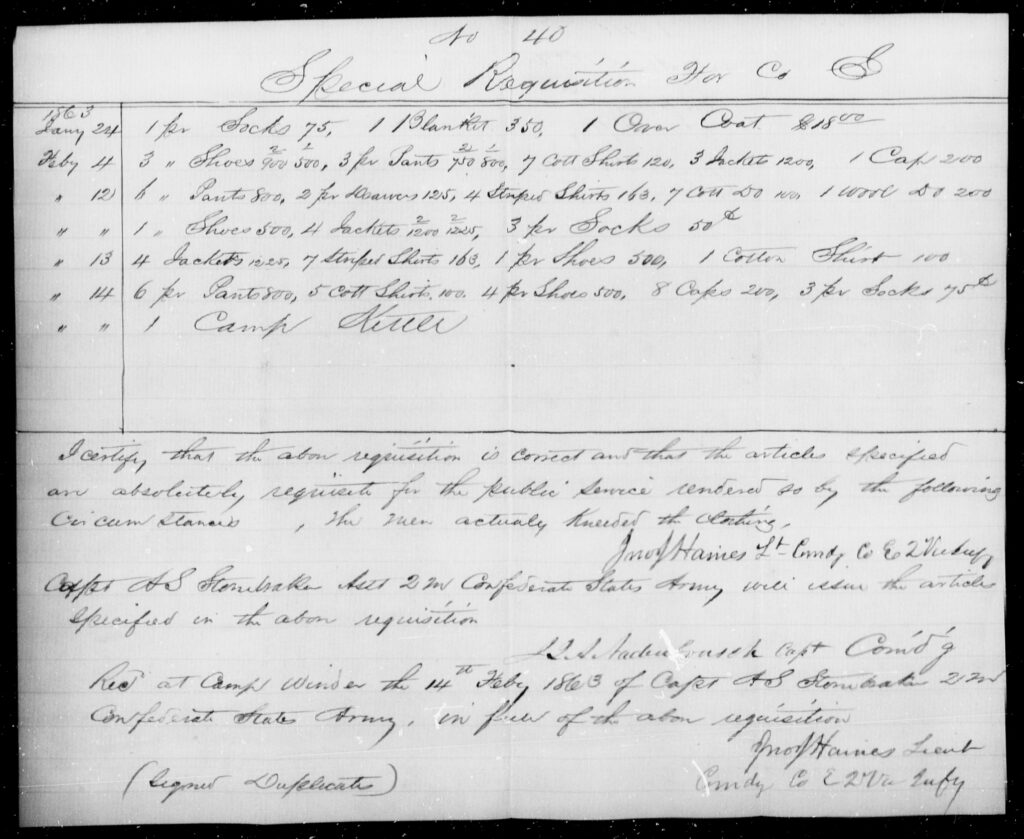 No 40
Special Requisition For Co E
1863
Jany 24 1 pr Socks 75, 1 Blanket 350, 1 Over Coat $18 00
Feby 4 3 " Shoes 2/900 1/500, 3 pr Pants 2/750 1/800, 7 Cott Shirts 120, 3 Jackets 1200, 1 Cap 200
" 12 6 " Pants 800, 2 pr Drawers 125, 4 Striped Shirts 163, 7 Cott Do 100, 1 Wool Do 200
" " 1 " Shoes 500, 4 Jackets 2/1200 2/1225, 3 pr Socks 50 ¢
" 13 4 Jackets 1225, 7 Striped Shirts 163, 1 pr Shoes 500, 1 Cotton Shirt 100
" 14 6 pr Pants 800, 5 Cott Shirts, 100. 4 pr Shoes 500, 8 Caps 200, 3 pr Socks 75 ¢
" " 1 Camp Kettle
I certify that the abov requisition is correct and that the articles specified
are absolutely requisite for the public service rendered so by the following
Circumstances , the men actualy kneeded the Clothing,
Jno J Haines Lt Comdg Co E 2 Va Infy
Capt A S Stonebraker Asst 2 M Confederate States Army will issue the articles
specified in the abov requisition
J. Q. A. Nadenbousch Capt Comd'g
Recd at Camp Winder the 14th Feby 1863 of Capt A S Stonebraker 2 M
Confederate States Army, in full of the abov requisition
Jno J Haines Lieut
Comdg Co E 2 Va Infy
(Signed Duplicates)